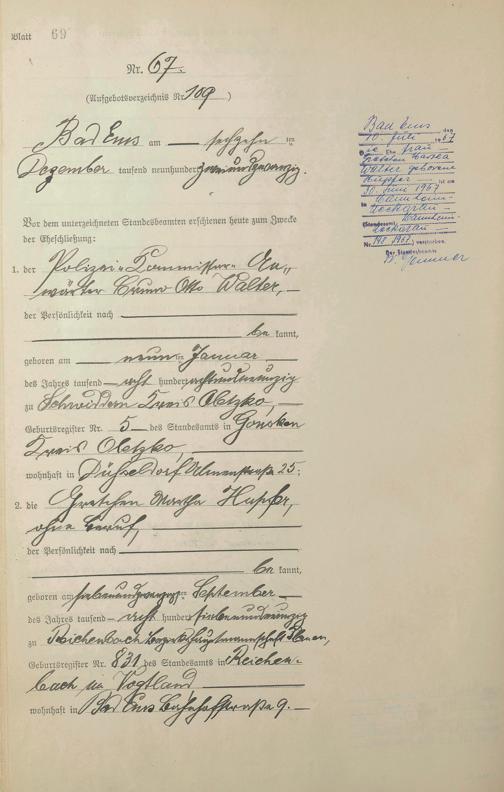 Blatt 69
Nr. 67.
(Aufgebotsverzeichnis Nr. 109)
Bad Ems am — sechzehn ten
Dezember tausend neunhundert zweiundzwanzig.
Vor dem unterzeichneten Standesbeamten erschienen heute zum Zwecke
der Eheschließung:
1. der Polizei-Kommissar-An-
wärter Bruno Otto Walter, —
der Persönlichkeit nach
be kannt,
geboren am — neun ten Januar
des Jahres tausend — acht hundert achtundneunzig
zu Schwiddern Kreis Oletzko, —
Geburtsregister Nr. 5 — des Standesamts in Gonsken
Kreis Oletzko,
wohnhaft in Düsseldorf Ulmenstraße 25;
2. die Gretchen Martha Hupfer,
ohne Beruf,
der Persönlichkeit nach
be kannt,
geboren am siebenundzwanzigsten September —
des Jahres tausend — acht hundert siebenundneunzig
zu Reichenbach Bezirkshauptmannschaft Plauen,
Geburtsregister Nr. 831 des Standesamts in Reichen-
bach im Vogtland
wohnhaft in Bad Ems Bahnhofstraße 9. —
Bad Ems den
10. Juli 1967
Die Ehefrau —
Gretchen Martha
Walter geborene
Hupfer — ist am
30. Juni 1967
in Mannheim-
Neckarau —
(Standesamt Mannheim-
Neckarau —
Nr. 198/1967) verstorben.
Der Standesbeamte